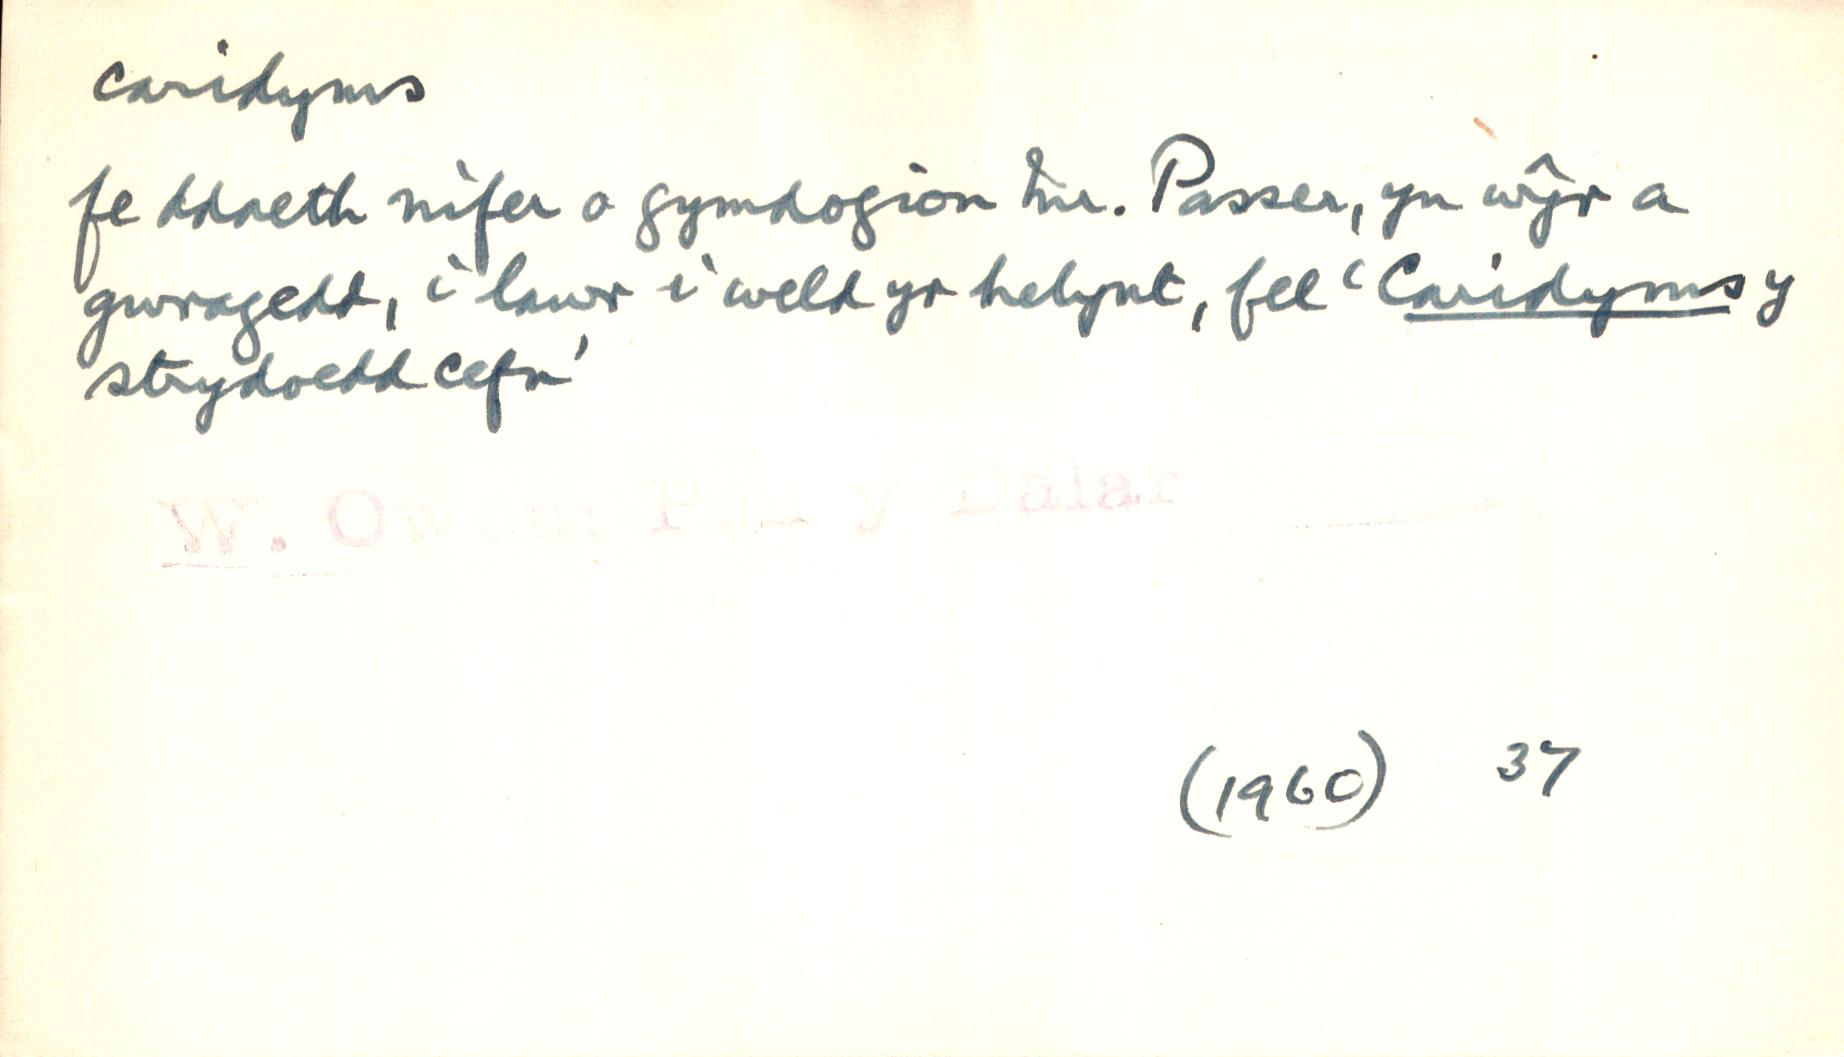 caridyms
fe ddaeth nifer o gymdogion Mr. Passer, yn wŷr a
gwragedd, i lawr i weld yr helynt, fel 'Caridyms y
strydoedd cefn'
W. Owen: Pen y Dalar
(1960) 37